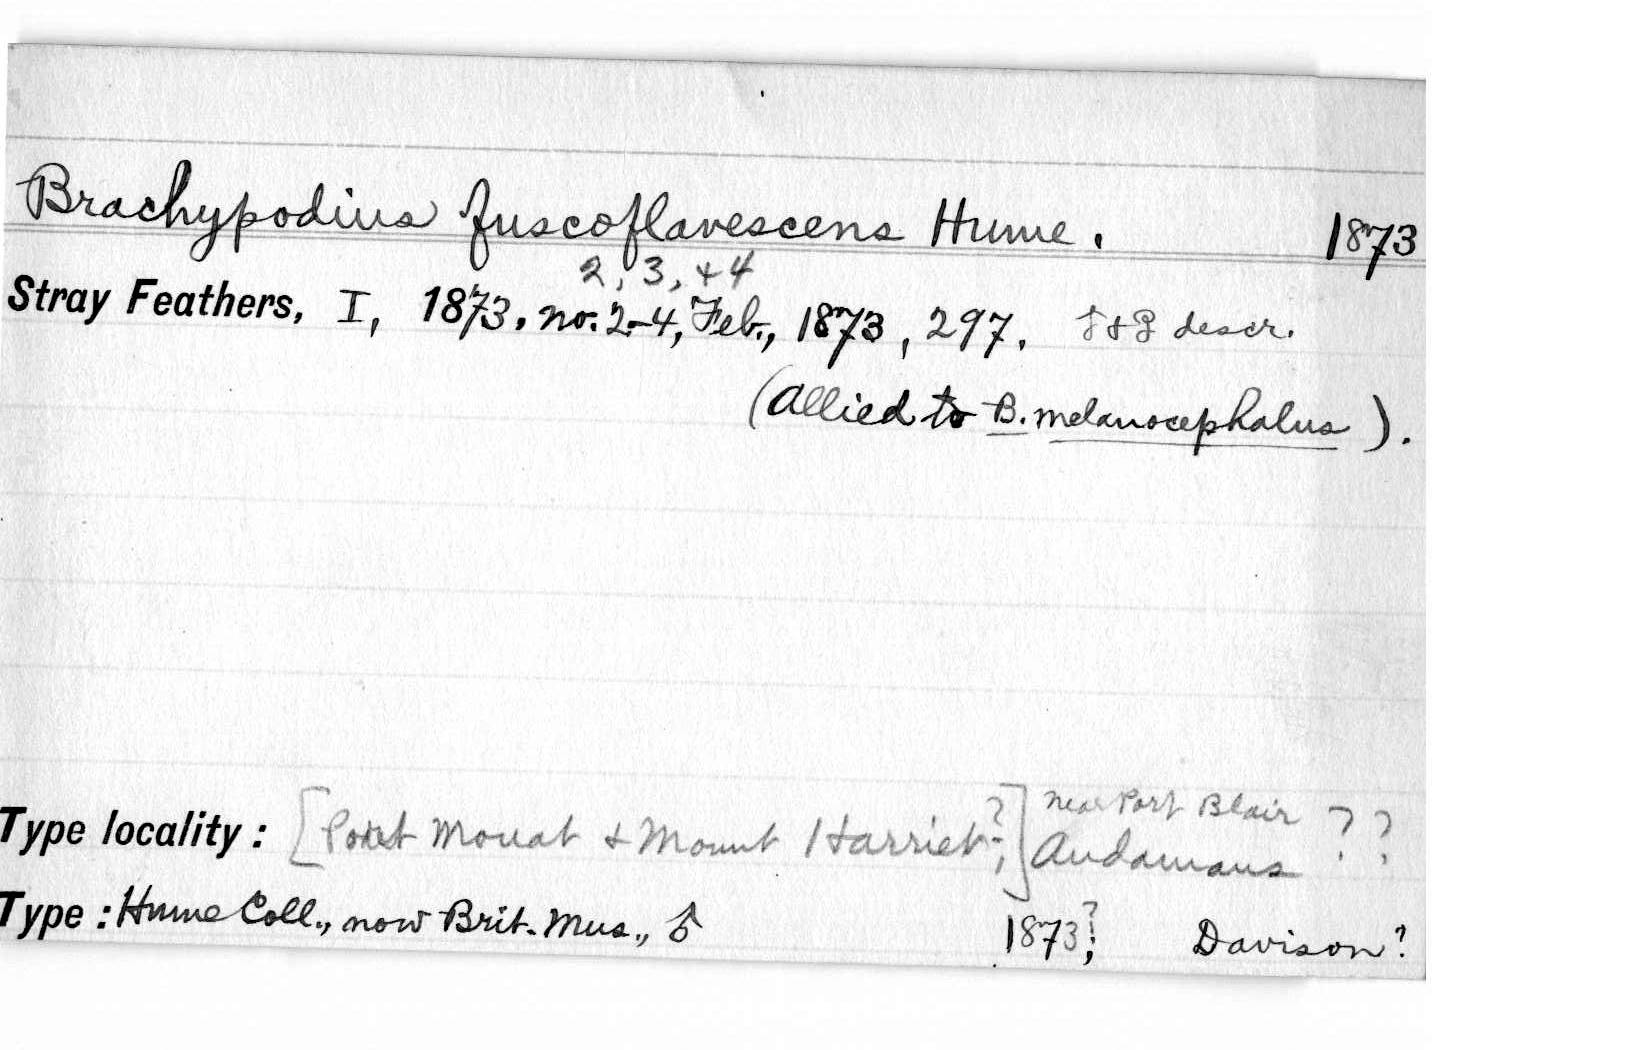 Brachypodius fuscoflavescens Hume. 1873
2, 3, + 4
Stray Feathers, I, 1873, no. 2-4, Feb., 1873, 297. ♂ + ♀ descr.
(Allied to B. melanocephalus).
near Port Blair
Type locality: [Port Mouat + Mount Harriet?;] Andamans ??
Type: Hume Coll., now Brit. Mus., ♂ 1873?; Davison?